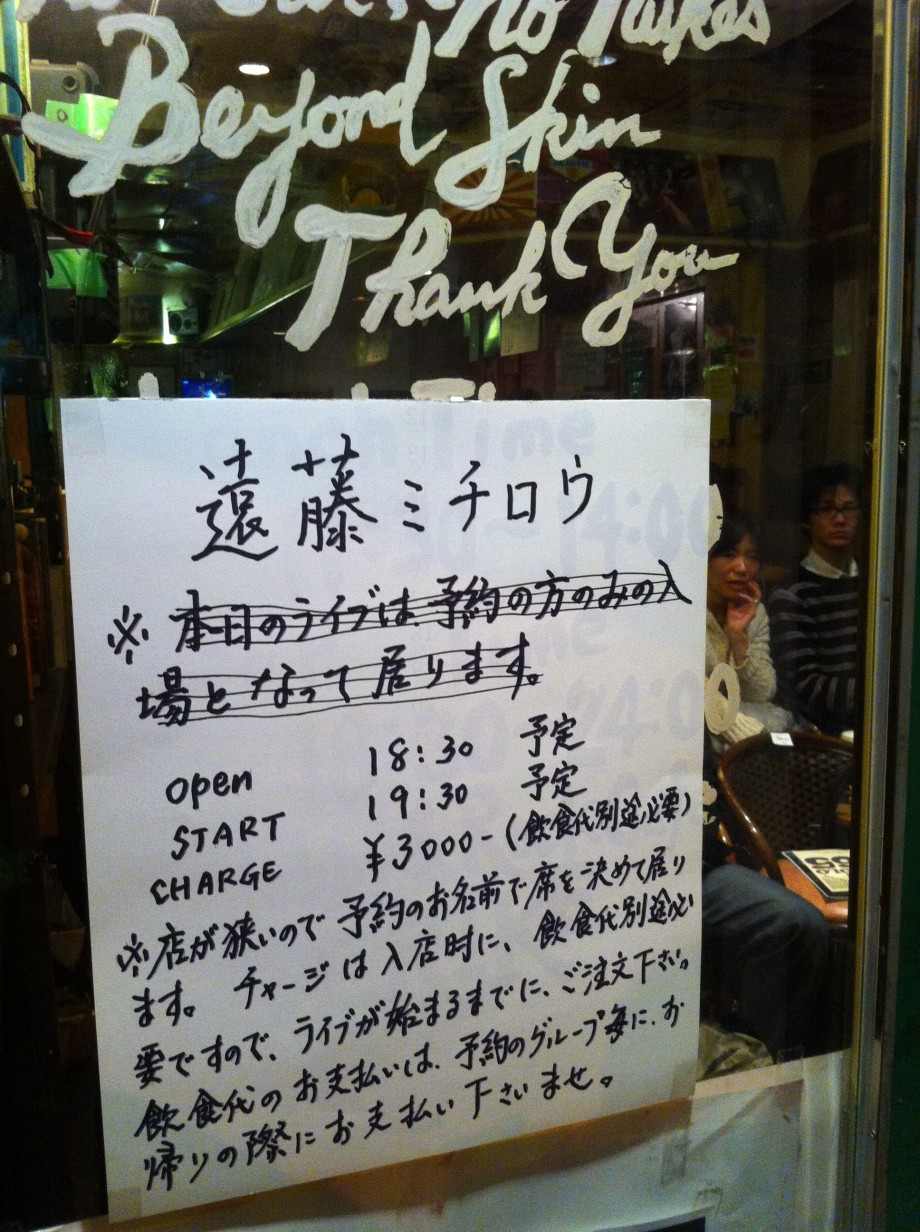 No Fakes
Beyond Skin
Thank You
遠藤ミチロウ
※本日のライブは、予約の方のみの入
場となって居ります。
open 18:30 予定
START 19:30 予定
CHARGE ¥3000-(飲食代別途必要)
※店が狭いので予約のお名前で席を決めて居り
ます。チャージは入店時に、飲食代別途必
要ですので、ライブが始まるまでに、ご注文下さい。
飲食代のお支払いは、予約のグループ毎に、お
帰りの際にお支払い下さいませ。